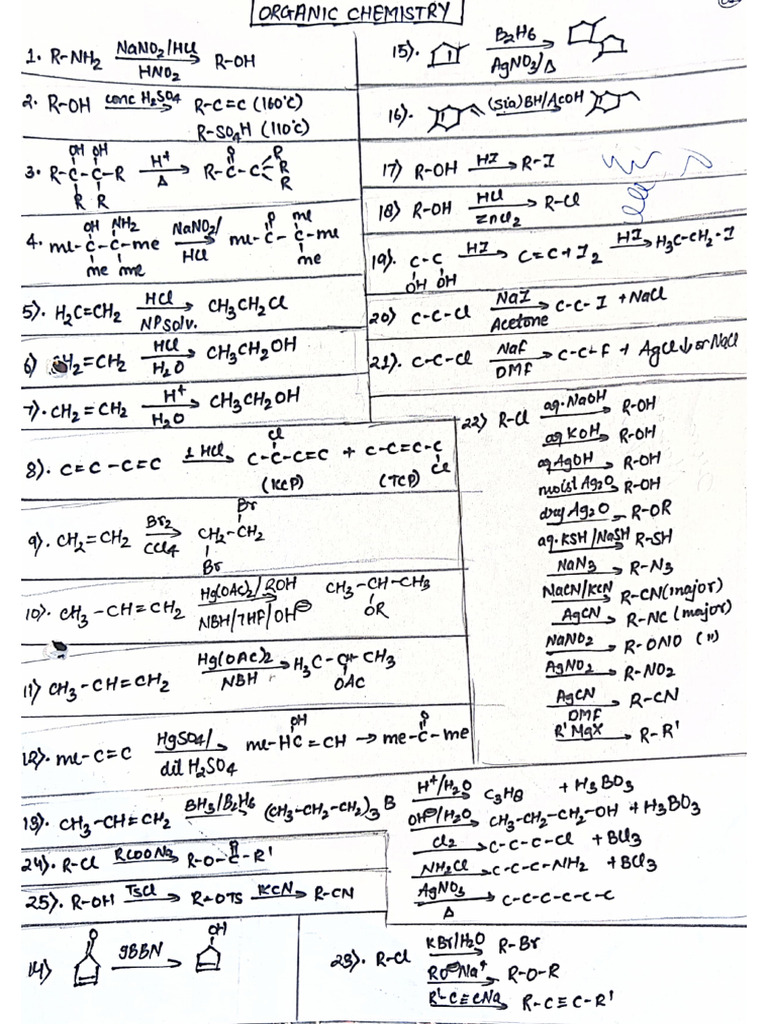 ORGANIC CHEMISTRY
1. R-NH2 NaNO2/HCl HNO2 R-OH
2. R-OH conc H2SO4 R-C=C (160°C)
R-SO4H (110°C)
3. OH OH R-C-C-R R R H+ Δ O R-C-C R R R
4. OH NH2 me-C-C-me me me NaNO2/ HCl O me-C-C-me me me
5). H2C=CH2 HCl NP solv. CH3CH2Cl
6) H2=CH2 HCl H2O CH3CH2OH
7). CH2=CH2 H+ H2O CH3CH2OH
8). C=C-C=C 1 HCl Cl C-C-C=C + C-C=C-C Cl
(KCP) (TCP)
9). CH2=CH2 Br2 CCl4 Br CH2-CH2 Br
10). CH3-CH=CH2 Hg(OAc)2/ROH NBH/THF/OH⊖ CH3-CH-CH3 OR
11) CH3-CH=CH2 Hg(OAc)2 NBH H3C-C-CH3 OAc
12). me-C=C HgSO4/ dil H2SO4 OH me-HC=CH → me-C-me O
13). CH3-CH=CH2 BH3/B2H6 (CH3-CH2-CH2)3 B
H+/H2O C3H8 + H3BO3
OH⊖/H2O CH3-CH2-CH2-OH + H3BO3
Cl2 C-C-C-Cl + BCl3
NH2Cl C-C-C-NH2 + BCl3
AgNO3 Δ C-C-C-C-C-C
24). R-Cl RCOONa R-O-C-R' O
25). R-OH TsCl R-OTS KCN R-CN
14) O 9BBN OH
15). B2H6 AgNO3/Δ
16). (Sia)BH/AcOH
17) R-OH HI R-I
18) R-OH HCl ZnCl2 R-Cl
19). C-C OH OH HI C=C+I2 HI H3C-CH2-I
20) C-C-Cl NaI Acetone C-C-I + NaCl
21). C-C-Cl NaF DMF C-C-F + AgCl↓ or NaCl
22) R-Cl aq.NaOH R-OH
aq KOH R-OH
aq AgOH R-OH
moist Ag2O R-OH
dry Ag2O R-OR
aq.KSH/NaSH R-SH
NaN3 R-N3
NaCN/KCN R-CN(major)
AgCN R-NC (major)
NaNO2 R-ONO (")
AgNO2 R-NO2
AgCN DMF R-CN
R'MgX R-R'
23). R-Cl KBr/H2O R-Br
RO⊖Na+ R-O-R
R'-C≡CNa R-C≡C-R'